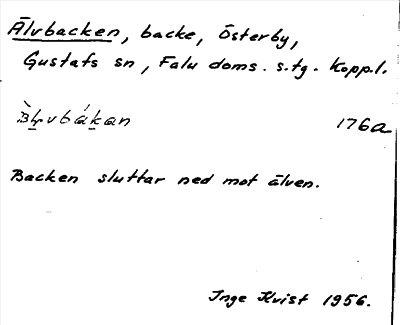 Älvbacken, backe, Österby,
Gustafs sn, Falu doms. s.tg. Kopp.l.
176a
Backen sluttar ned mot älven.
Inge Kvist 1956.